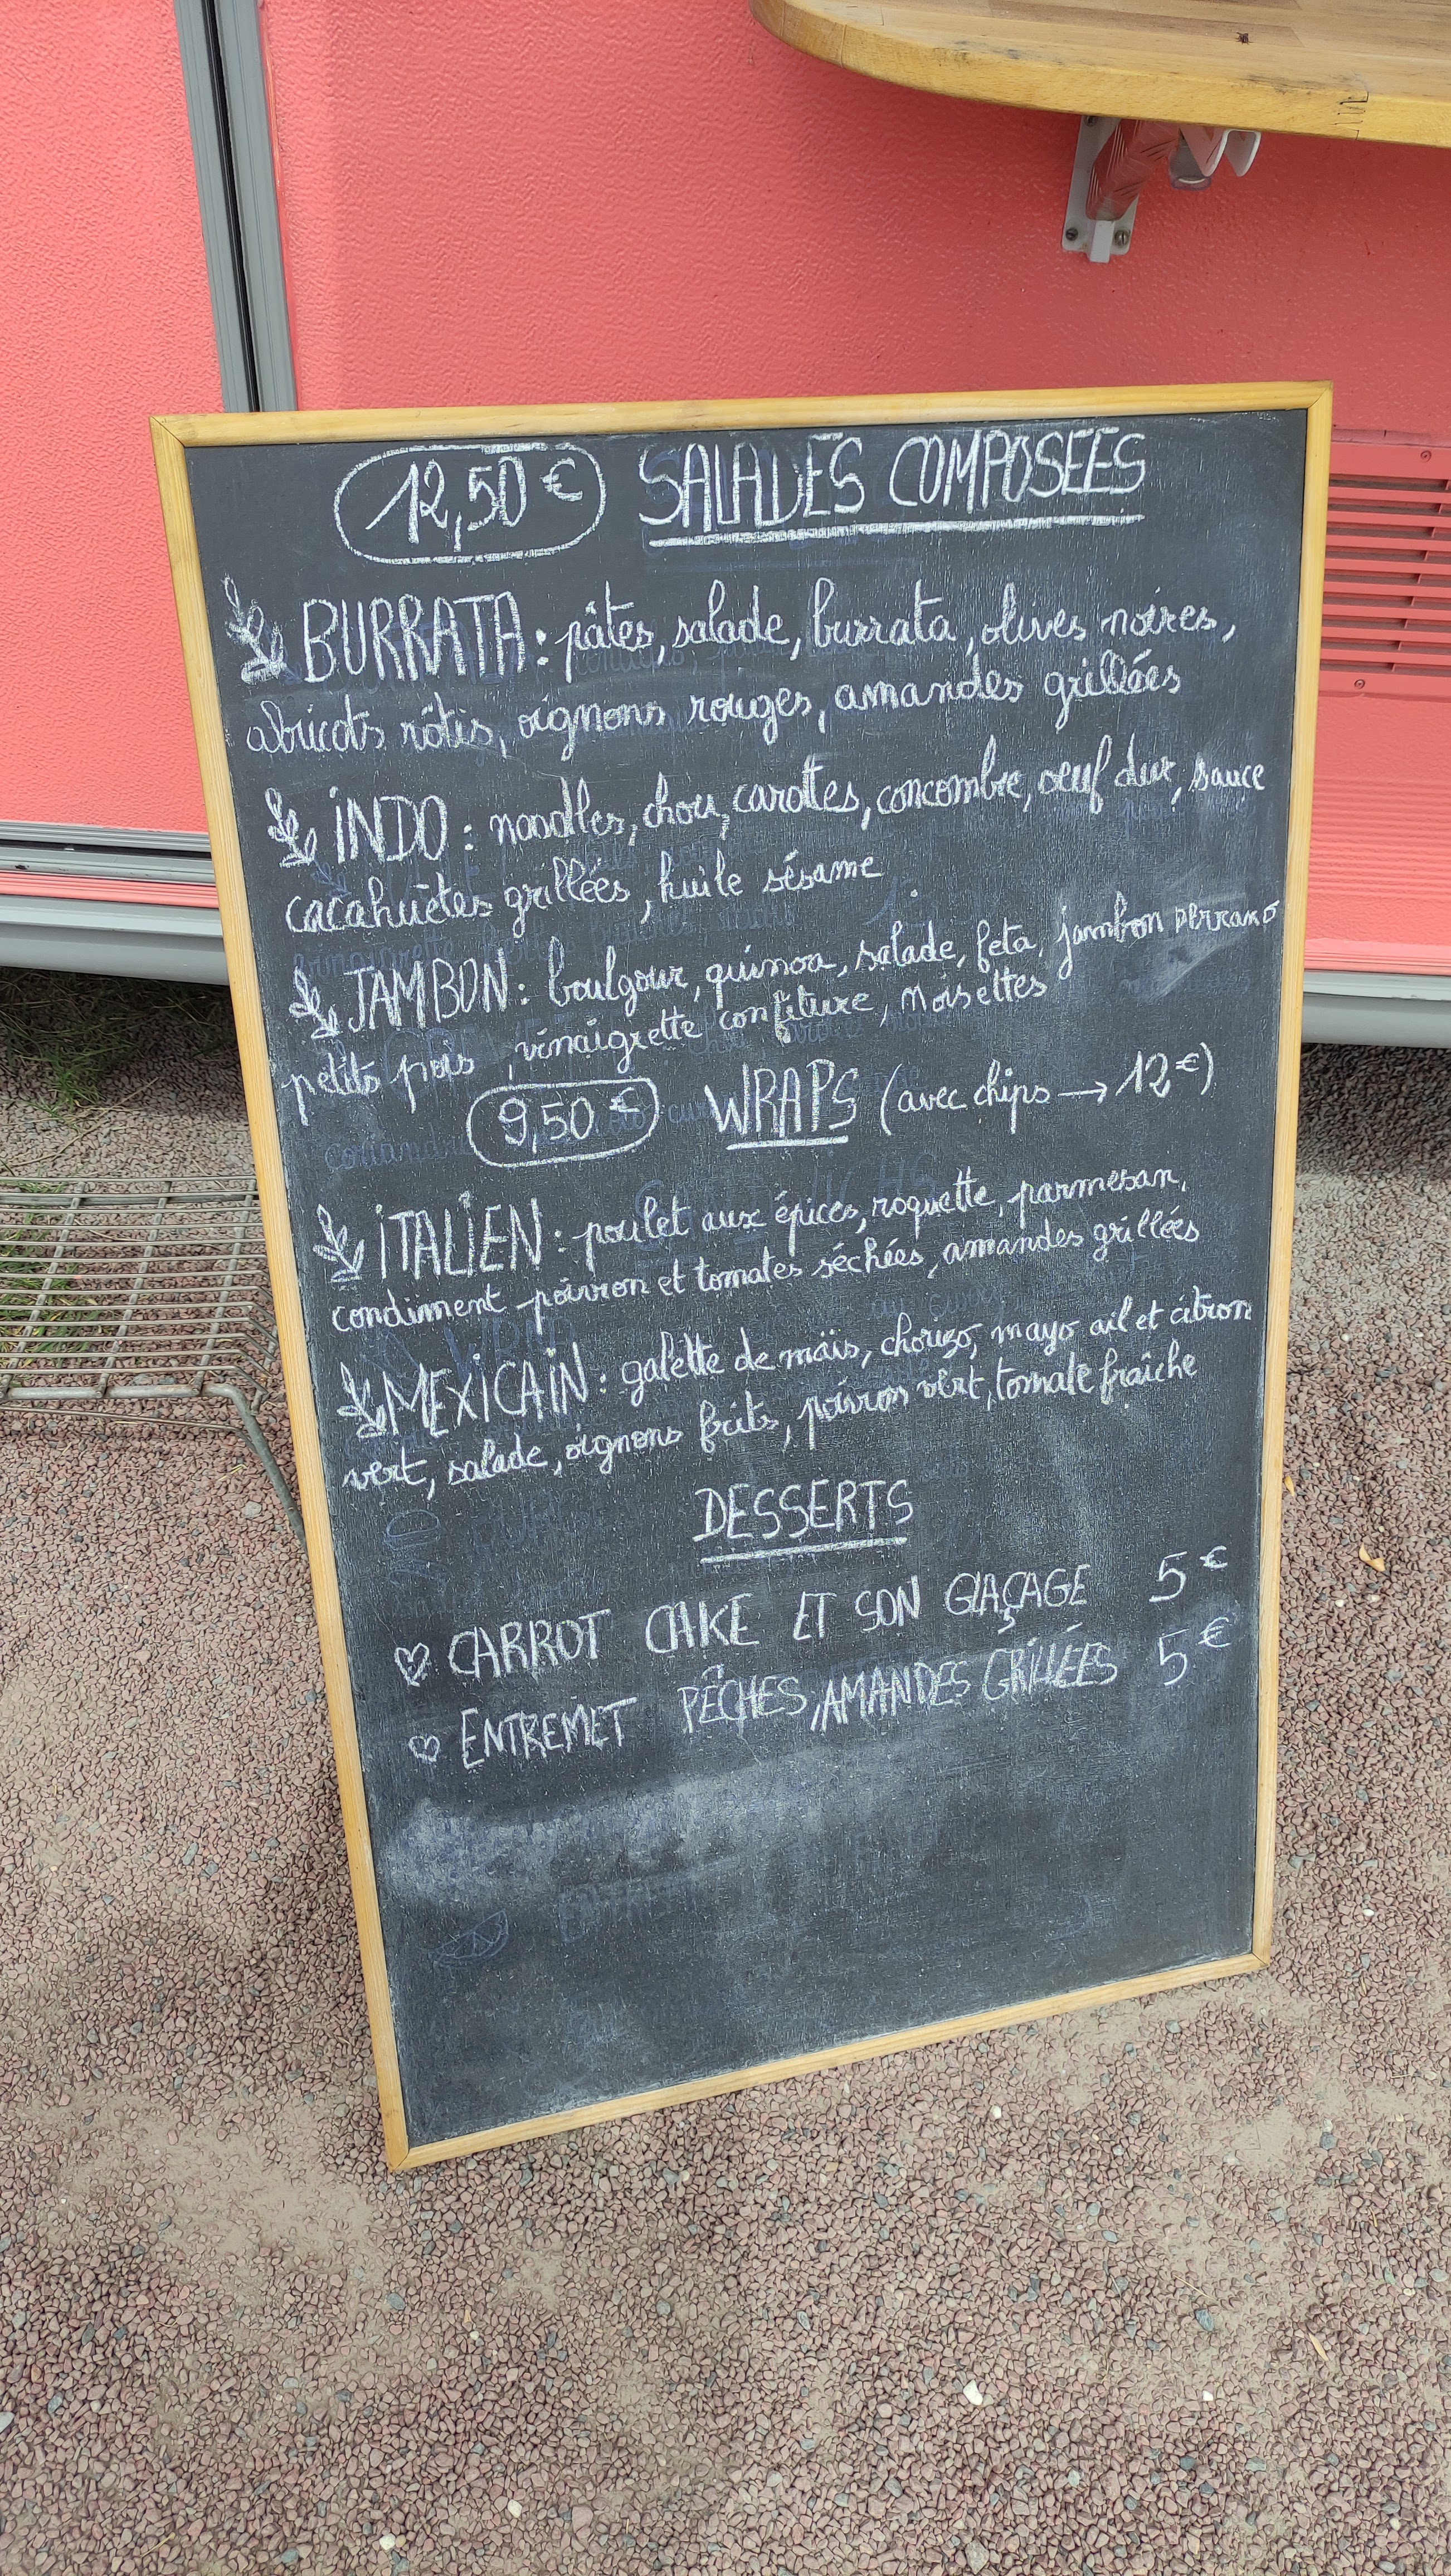 12,50 € SALADES COMPOSEES
BURRATA : pâtes, salade, burrata, olives noires,
abricots rôtis, oignons rouges, amandes grillées
INDO : noodles, chou, carottes, concombre, oeuf dur, sauce
cacahuètes grillées, huile sésame
JAMBON : boulgour, quinoa, salade, feta, jambon serrano
petits pois, vinaigrette confiture, noisettes
9,50 € WRAPS (avec chips → 12 €)
ITALIEN : poulet aux épices, roquette, parmesan,
condiment poivron et tomates séchées, amandes grillées
MEXICAIN : galette de maïs, chorizo, mayo ail et citron
vert, salade, oignons frits, poivron vert, tomate fraîche
DESSERTS
♡ CARROT CAKE ET SON GLAÇAGE 5 €
♡ ENTREMET PÊCHES, AMANDES GRILLÉES 5 €